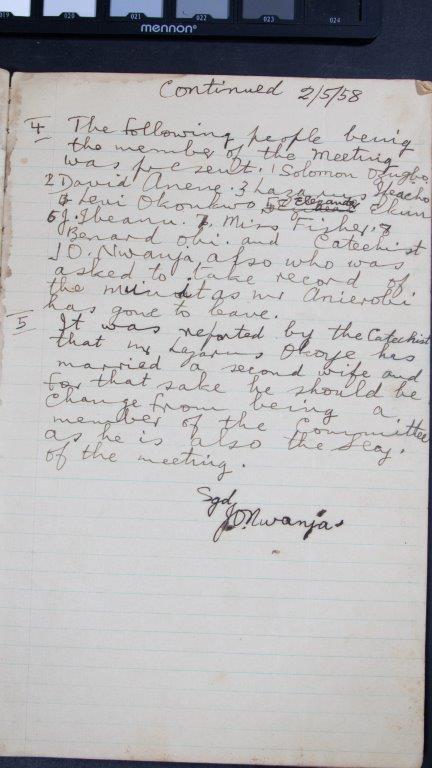 019 020 021 022 023 024
mennon®
Continued 2/5/58
4 The following people being
the member of the Meeting
was present. 1 Solomon
2 David Anene. 3 Lazarus
4 Levi Okonkwo 5
6 J. Ibeanu. 7. Miss Fisher, 8
Benard Obi. and Catechist
J O. Nwanja, also who was
asked to take record of
the minit as mr Anierobi
has gone to leave.
5 It was reported by the Catechist
that mr Lazarus Okoye has
married a second wife and
for that sake he should be
change from being a
member of the Committee
as he is also the Secy.
of the meeting.
Sgd,
J.O. Nwanja.